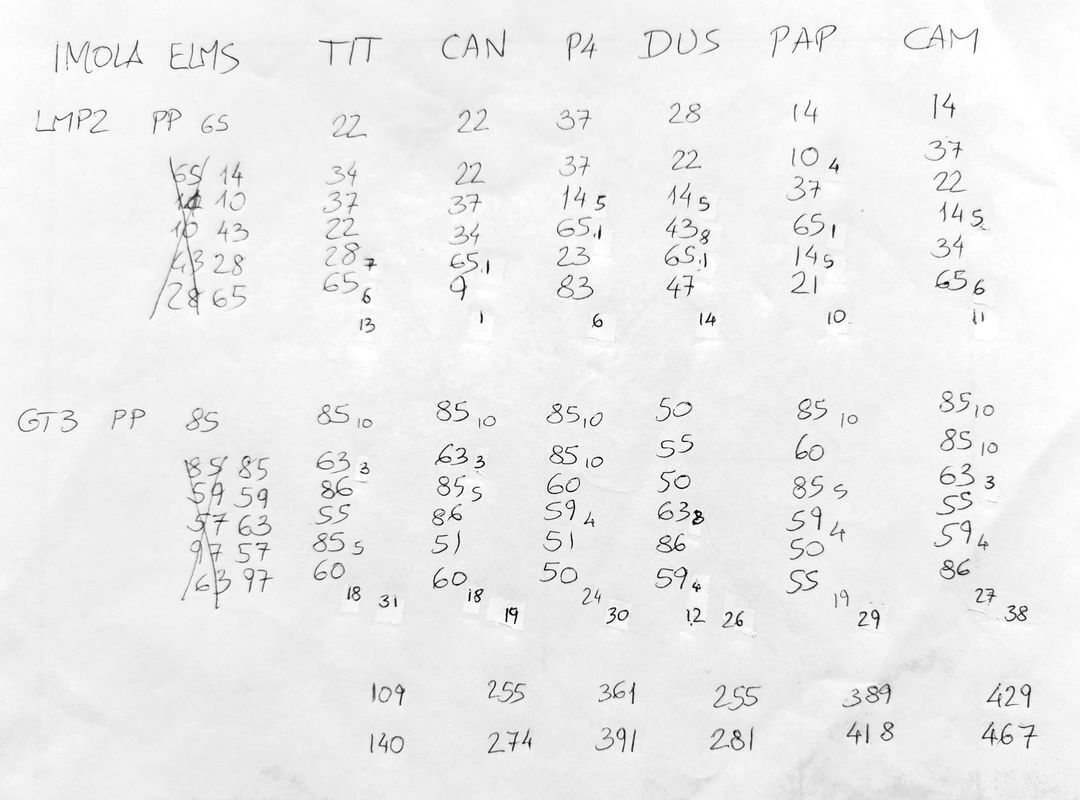 IMOLA ELMS TIT CAN P4 DUS PAP CAM
LMP2 PP 65 22 22 37 28 14 14
65 14 34 22 37 22 10 4 37
10 37 37 14 5 14 5 37 22
10 43 22 34 65 1 43 8 65 1 14 5
43 28 28 7 65 1 23 65 1 14 5 34
28 65 65 6 9 83 47 21 65 6
13 1 6 14 10 11
GT3 PP 85 85 10 85 10 85 10 50 85 10 85 10
85 85 63 3 63 3 85 10 55 60 85 10
59 59 86 85 5 60 50 85 5 63 3
57 63 55 86 59 4 63 8 59 4 55
97 57 85 5 51 51 86 50 59 4
63 97 60 60 50 59 4 55 86
18 31 18 19 24 30 12 26 19 29 27 38
109 255 361 255 389 429
140 274 391 281 418 467